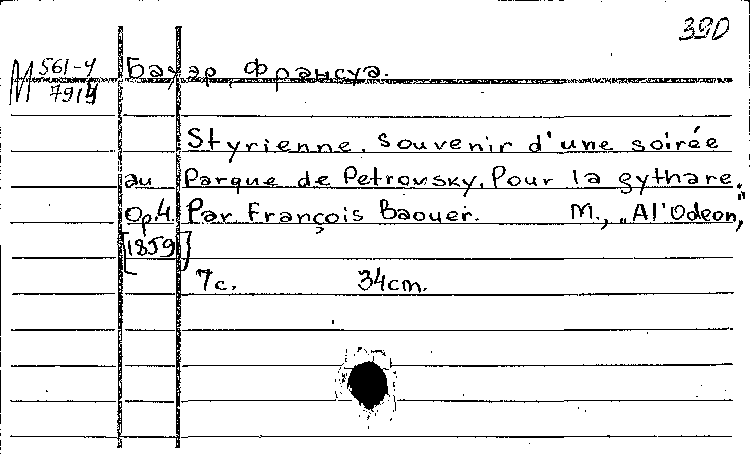 390
М 561-4 Бауэр, Франсуа.
7914
Styrienne. Souvenir d'une soirée
au Parque de Petrovsky. Pour la gythare.
Op.4. Par François Baouer. М., „Al'Odeon",
[1859]
7 с. 34 cm.